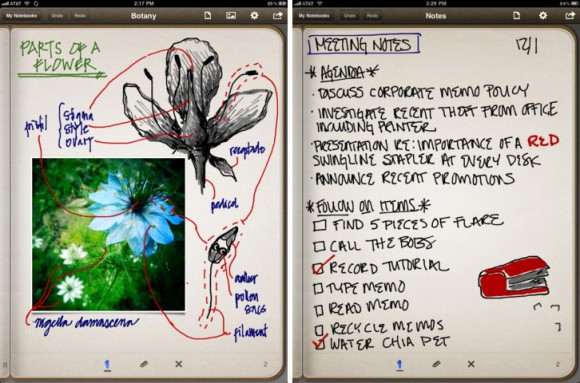 AT&T 2:17 PM
My Notebooks Undo Redo Botany
PARTS OF A
FLOWER
pistil
stigma
style
ovary
receptacle
pedicel
anther
pollen
sacs
filament
nigella damascena
2
AT&T 3:29 PM 86%
My Notebooks Undo Redo Notes
MEETING NOTES 12/1
*AGENDA*
· DISCUSS CORPORATE MEMO POLICY
· INVESTIGATE RECENT THEFT FROM OFFICE
INCLUDING PRINTER
· PRESENTATION RE: IMPORTANCE OF A RED
SWINGLINE STAPLER AT EVERY DESK
· ANNOUNCE RECENT PROMOTIONS
*FOLLOW ON ITEMS*
FIND 5 PIECES OF FLARE
CALL THE BOBS
RECORD TUTORIAL
TYPE MEMO
READ MEMO
RECYCLE MEMOS
WATER CHIA PET
2